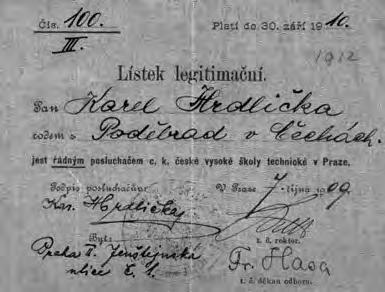 Čís. 100.
III.
Platí do 30. září 1910.
1912
Lístek legitimační.
Pan Karel Hrdlička
rodem z Poděbrad v Čechách.
jest řádným posluchačem c. k. české vysoké školy technické v Praze.
Podpis posluchačův:
V Praze 7. října 1909
Kar. Hrdlička
z. č. rektor.
Byt:
Praha II. Jenštejnská
ulice č. 1.
Fr. Hasa
t. č. děkan odboru.